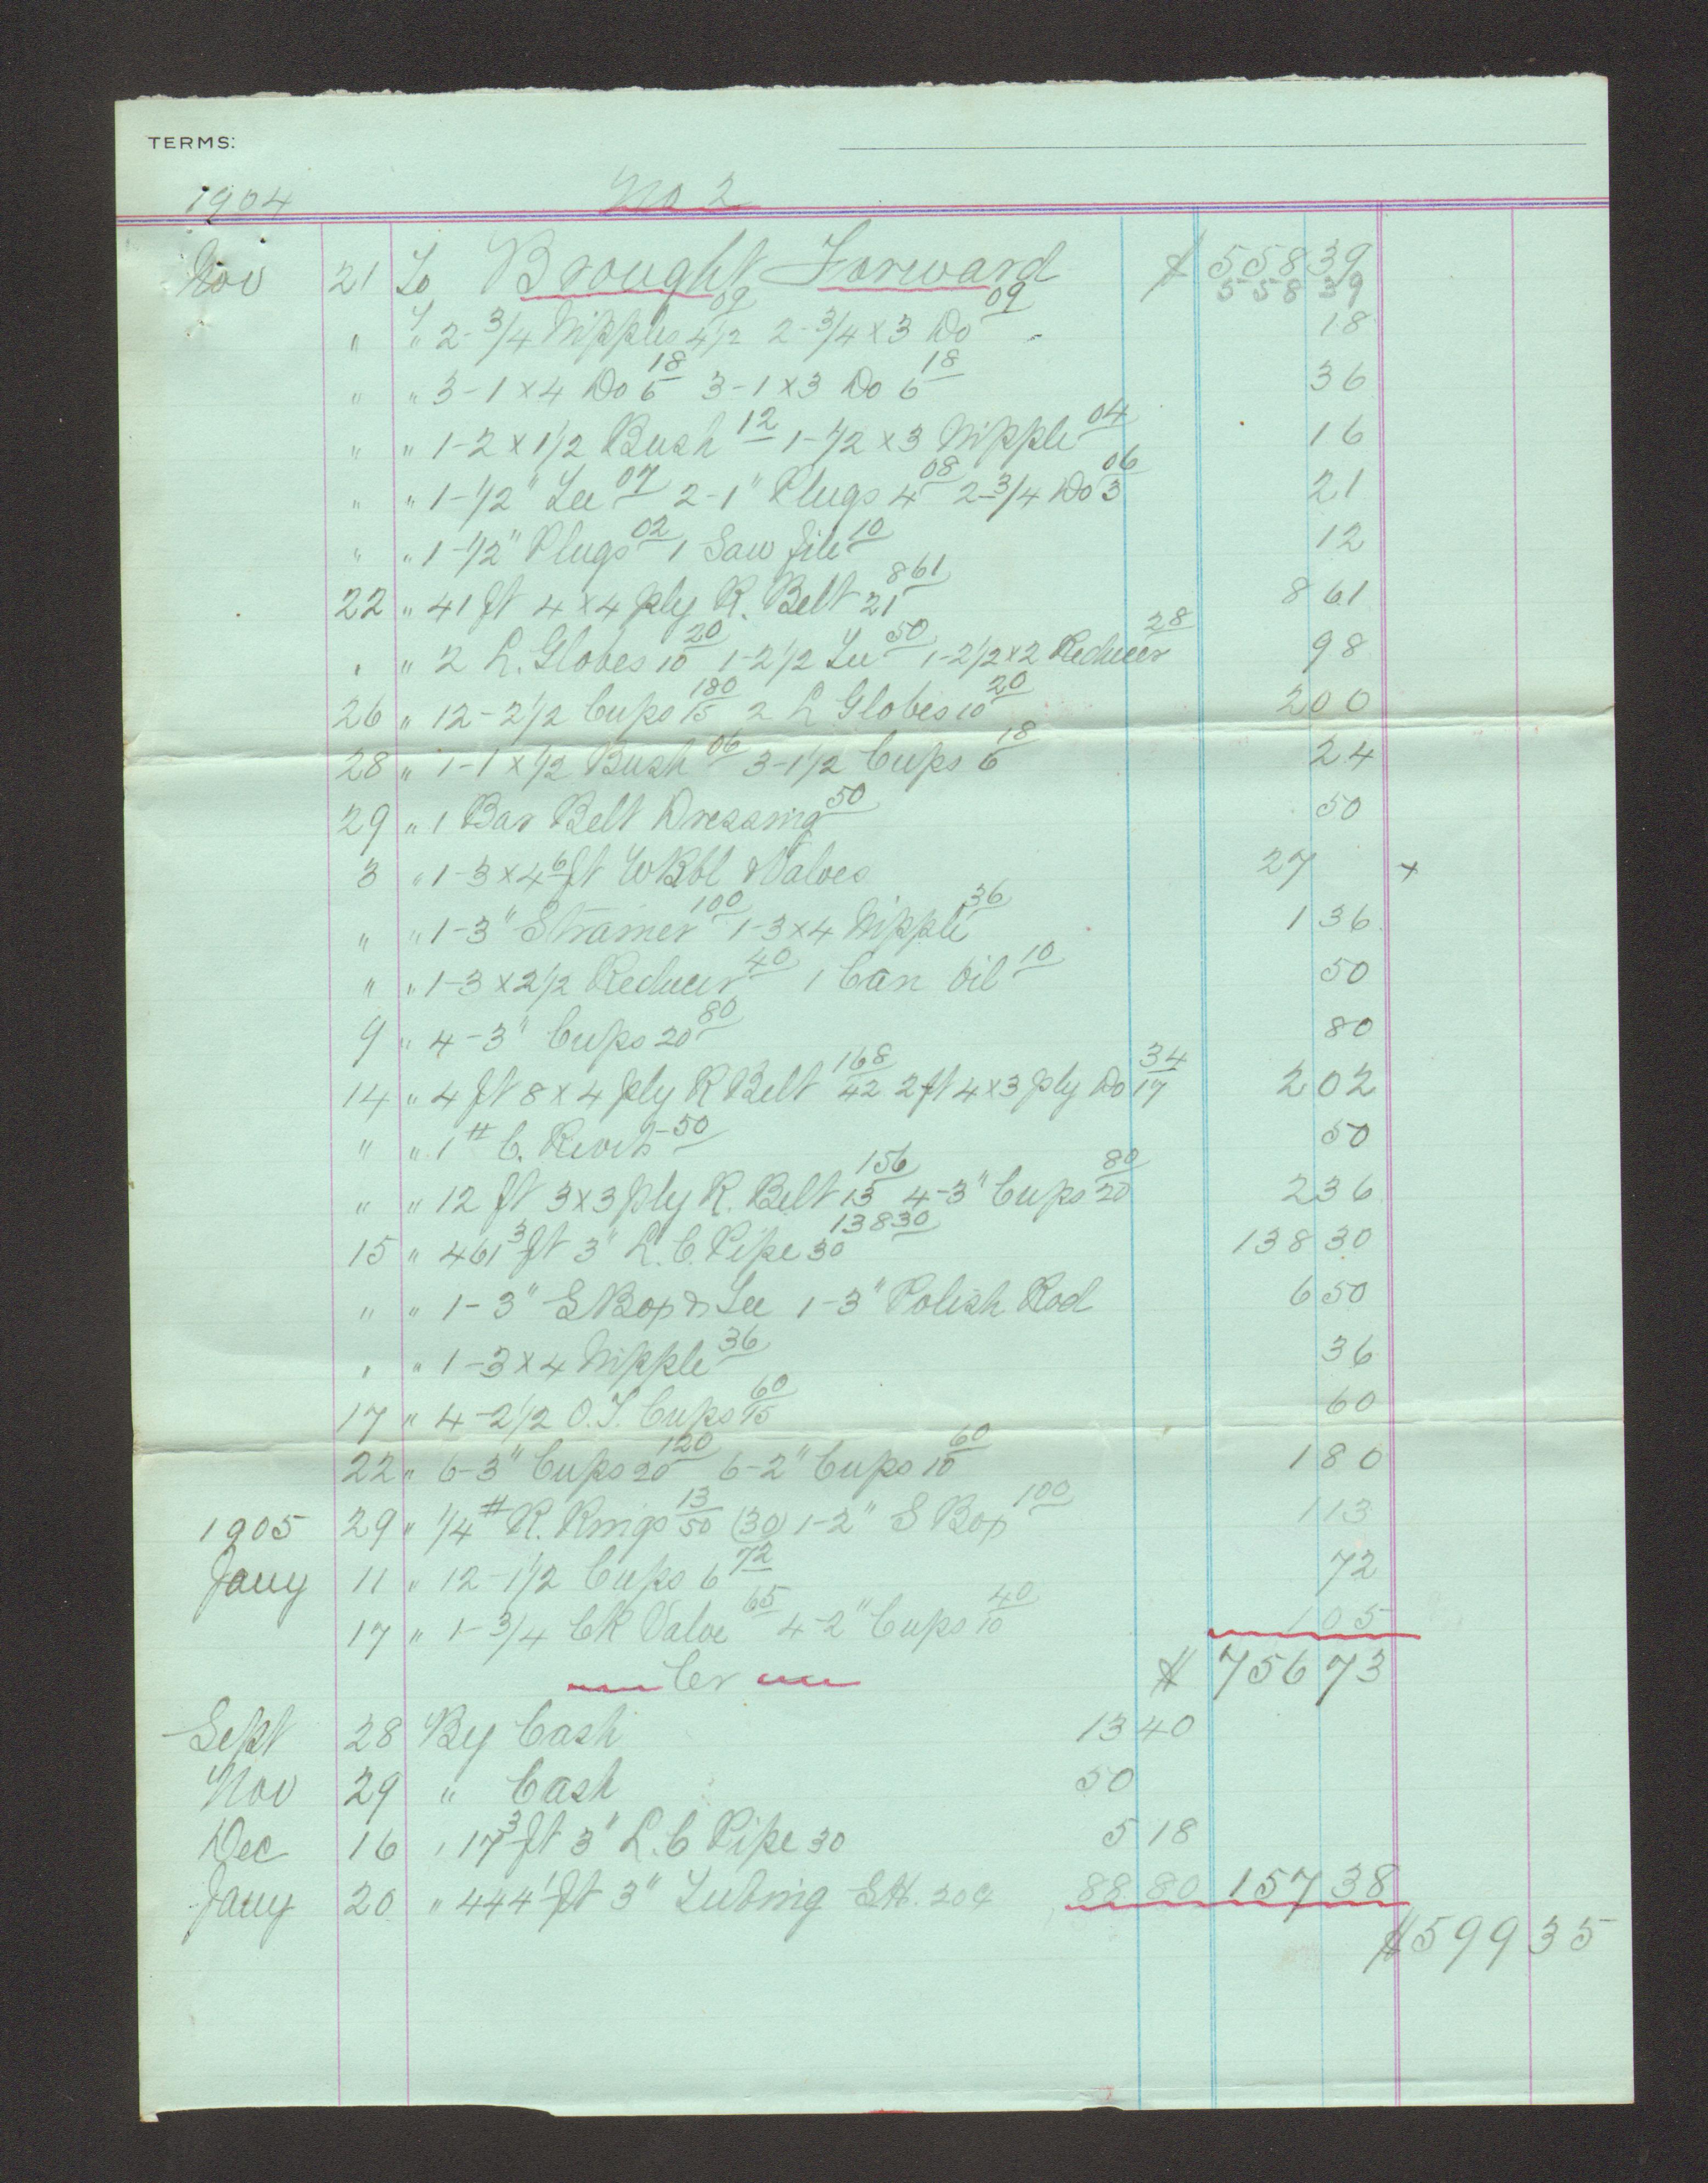 TERMS:
1904 No 2
Nov 21 To Brought Forward $ 558 39
558 39
" " 2-3/4 Nipples 4 1/2 09 2-3/4 x 3 Do 09 18
" " 3-1x4 Do 6 18 3-1x3 Do 6 18 36
" " 1-2x1 1/2 Bush 12 1-1/2 x 3 Nipple 04 16
" " 1-1/2" Tee 07 2-1" Plugs 4 08 2-3/4 Do 3 06 21
" " 1-1/2" Plugs 02 1 Saw file 10 12
22 " 41 ft 4x4 ply R. Belt 21 861 8 61
" " 2 L. Globes 10 20 1-2 1/2 Tee 50 1-2 1/2 x 2 Reducer 28 98
26 " 12-2 1/2 Cups 15 180 2 L Globes 10 20 2 00
28 " 1-1 x 1/2 Bush 06 3-1 1/2 Cups 6 18 24
29 " 1 Bar Belt Dressing 50 50
3 " 1-3x4 6 ft W Bbl & Valves 27 x
" " 1-3" Strainer 100 1-3x4 Nipple 36 1 36
" " 1-3x2 1/2 Reducer 40 1 Can Oil 10 50
9 " 4-3" Cups 20 80 80
14 " 4 ft 8x4 ply R Belt 42 168 2 ft 4x3 ply Do 17 34 2 02
" " 1 # C. Rivets 50 50
" " 12 ft 3x3 ply R. Belt 13 156 4-3" Cups 20 80 2 36
15 " 461 3 ft 3" L. C. Pipe 30 13830 138 30
" " 1-3" S Box & Tee 1-3" Polish Rod 6 50
" " 1-3x4 Nipple 36 36
17 " 4-2 1/2 O.T. Cups 15 60 60
22 " 6-3" Cups 20 120 6-2" Cups 10 60 1 80
1905 29 " 1/4 # R. Rings 50 13 (30) 1-2" S Box 100 1 13
Jany 11 " 12-1 1/2 Cups 6 72 72
17 " 1-3/4 CK Valve 65 4-2" Cups 10 40 1 05
Cr $ 756 73
Sept 28 By Cash 13 40
Nov 29 " Cash 50
Dec 16 " 17 3 ft 3" L. C Pipe 30 5 18
Jany 20 " 444 1 ft 3" Tubing S.H. 20¢ 88 80 157 38
$599 35